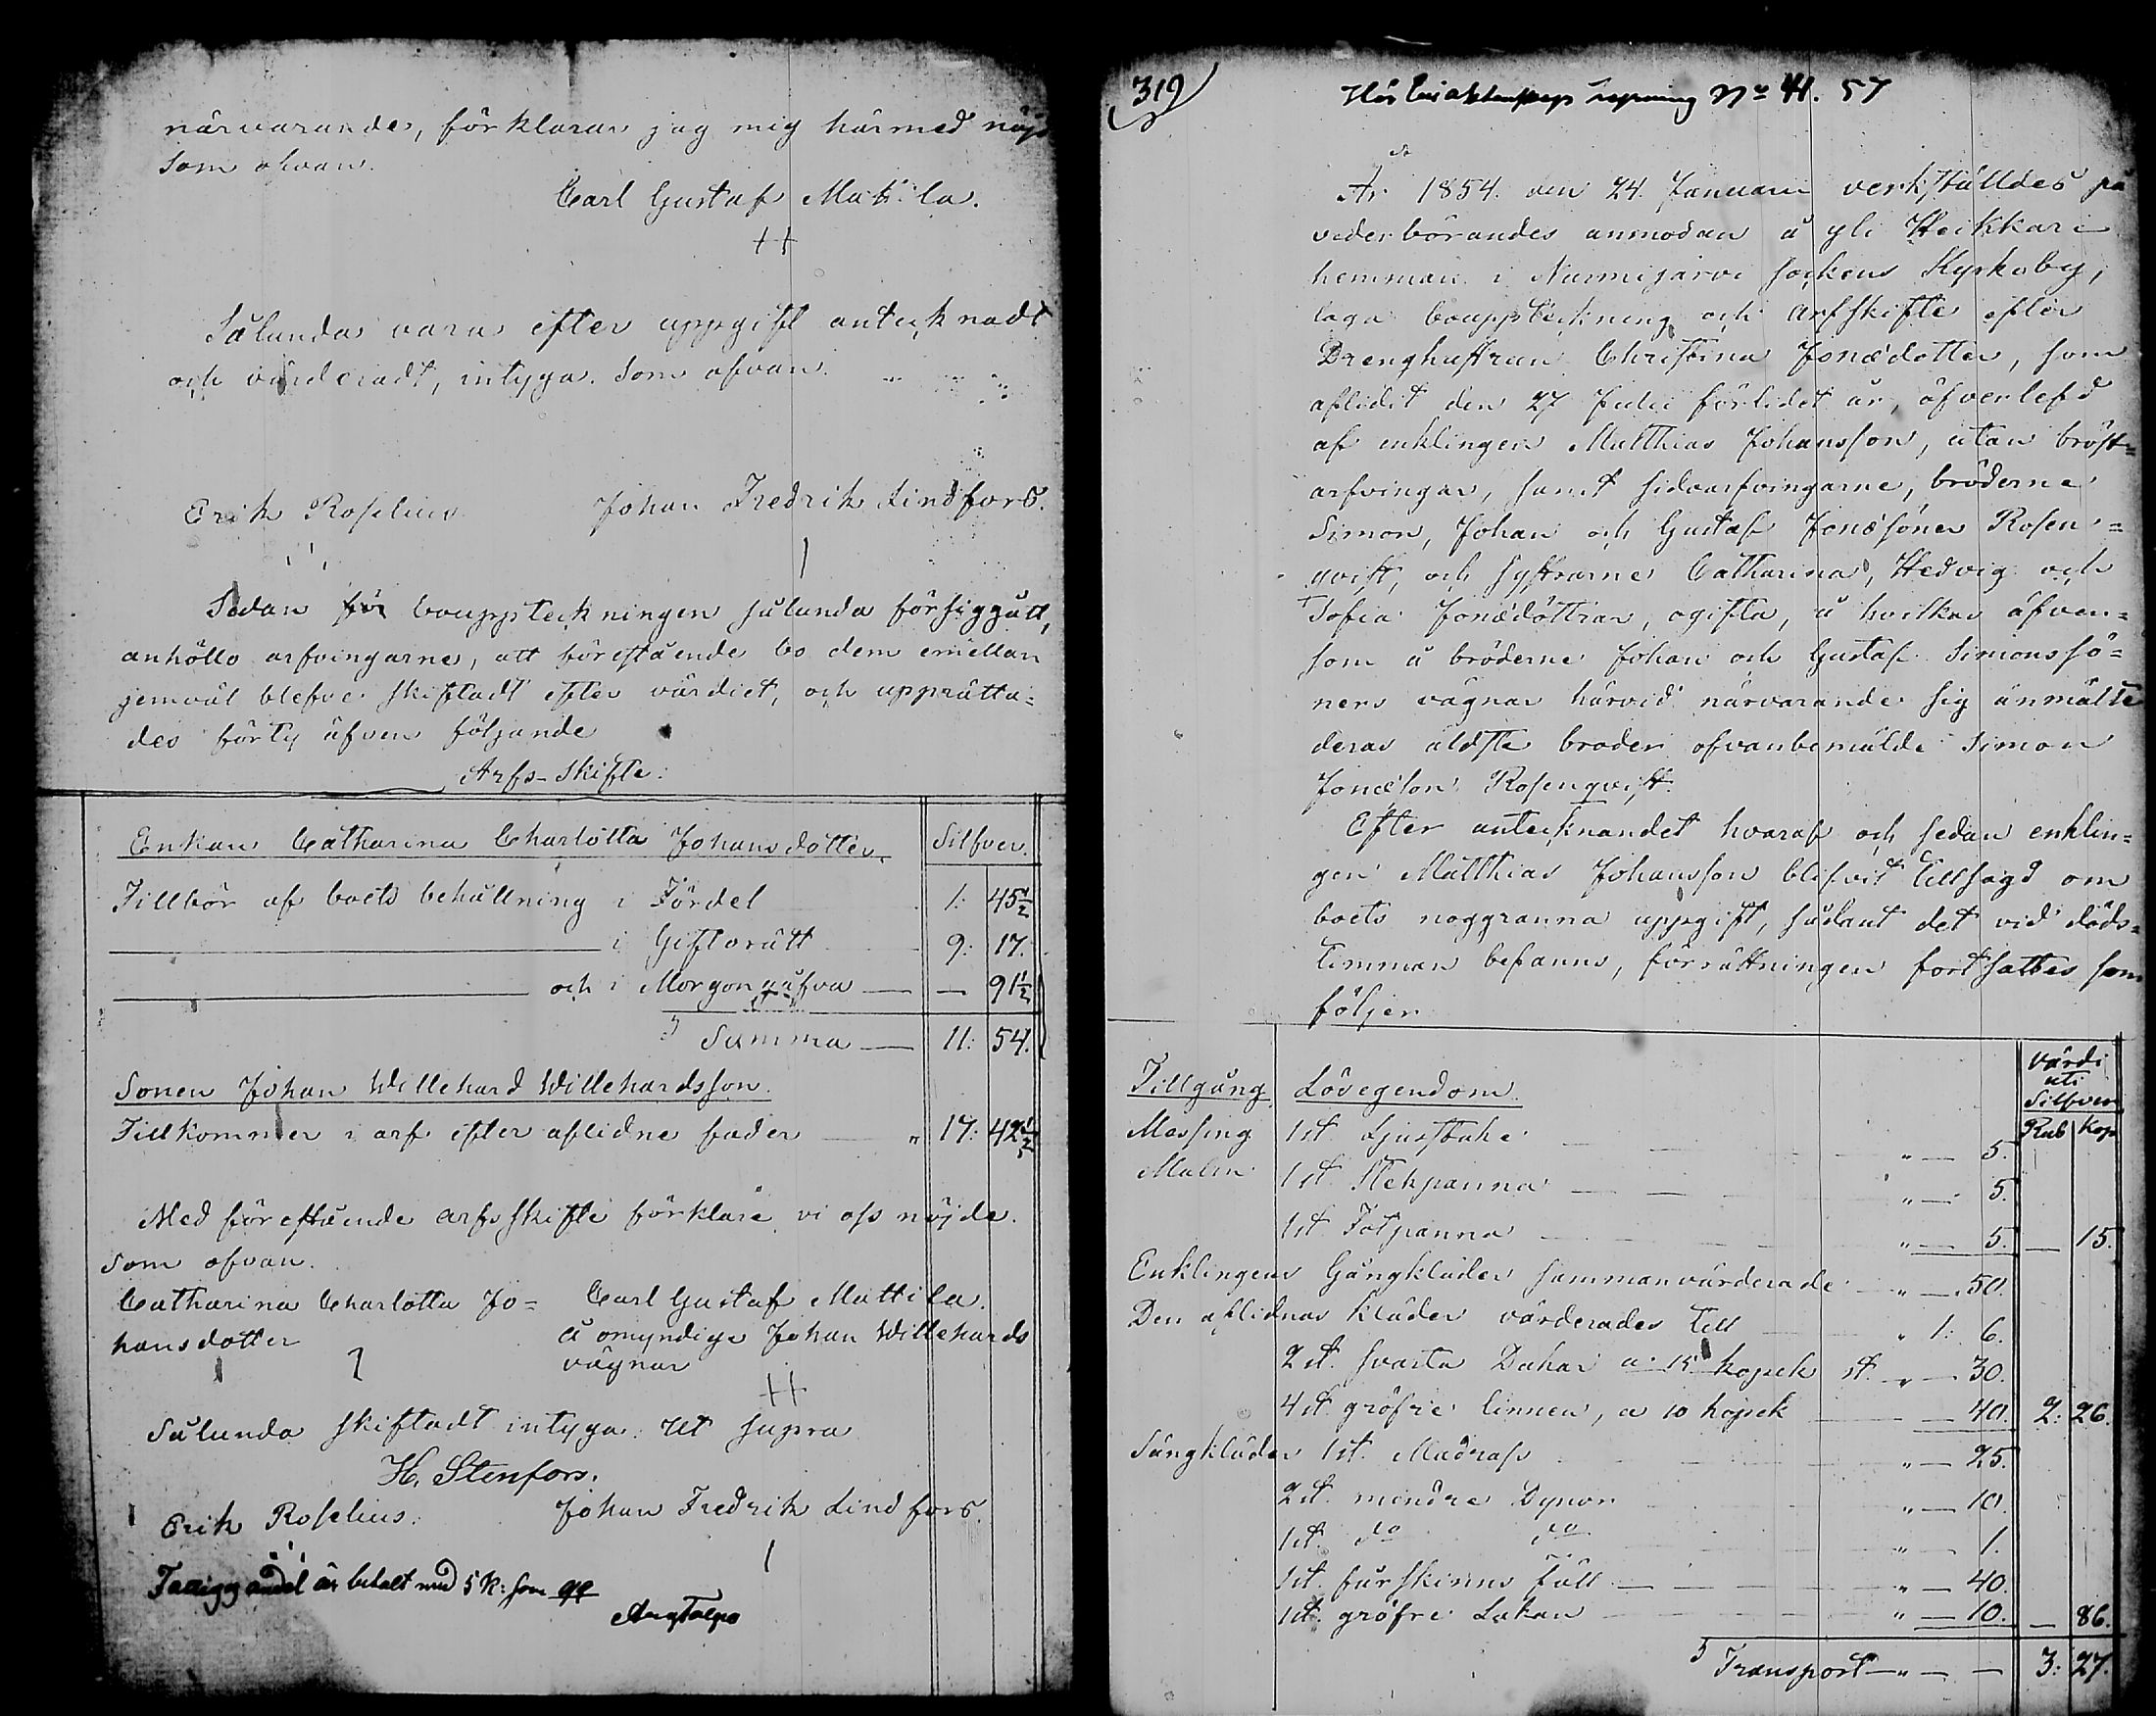 närvarande, förklarar jag mig härmed nöjd
som ofvan.
Carl Gustaf Mattila.
++
Sålunda vara efter uppgift antecknadt
och värderadt, intyga. Som ofvan.
Erik Roselius Johan Fredrik Lindfors.
Sedan för bouppteckningen sålunda försiggått,
anhöllo arfvingarne, att förestående bo dem emellan
jemväl blefve skiftadt efter värdiet, och upprätta=
des förty äfven följande
Arfs-Skifte:
Enkan Catharina Charlotta Johansdotter. Silfver.
Tillbör af boets behållning i Fördel 1: 45½
i Giftorätt 9: 17.
och i Morgongåfva — — 91½
Summa — 11: 54.
Sonen Johan Willehard Willehardsson.
Tillkommer i arf efter aflidne fader — " 17: 42½
Med förestående arfsskifte förklare vi oss nöjde.
Som ofvan.
Catharina Charlotta Jo= Carl Gustaf Mattila.
hansdotter å omyndige Johan Willehards
vägnar
++
Sålunda skiftadt intyga. Ut supra
H. Stenfors.
Erik Roselius. Johan Fredrik Lindfors.
andel är betalt med 5 K: som
319
No 41. 57
År 1854. den 24. Januari verkställdes på
vederbörandes anmodan å yli Heikkari
hemman i Nurmijärvi sockens Kyrkoby,
laga bouppteckning och arfskifte efter
Drenghustrun Christina Jonædotter, som
aflidit den 27 Julii förlidet år, öfverlefd
af enklingen Matthias Johansson, utan bröst=
arfvingar, samt sidoarfvingarne, bröderne
Simon, Johan och Gustaf Jonæsöner Rosen=
qvist, och systrarne Catharina, Hedvig och
Sofia Jonædöttrar, ogifta, å hvilkas äfven=
som å bröderne Johan och Gustaf Simonssö=
ners vägnar härvid närvarande sig anmälte
deras äldste broder ofvanbemälde Simon
Jonæson Rosenqvist.
Efter antecknandet hvaraf och sedan enklin=
gen Matthias Johansson blifvit tillsagd om
boets noggranna uppgift, sådant det vid döds=
timman befanns, förrättningen fortsattes som
följer
Tillgång. Lösegendom. Värdi
uti
Silfver
Rub Kop
Messing 1 st. Ljusstake " — 5.
Malm 1 st. Stekpanna — — " — 5.
1 st. Fotpanna — " — 5. — 15.
Enklingens Gångkläder sammanvärderade " — 50.
Den aflidnas kläder värderades till " 1: 6.
2 st. svarta Dukar a 15 kopek st. " — 30.
4 st. gröfre linnen, a 10 kopek — 40. 2: 26.
Sängkläder 1 st. Madrass " — 25.
2 st. mindre Dynor " — 10.
1 st. do do " — 1.
1 st. fårskinns fäll — — " — 40.
1 st. gröfre Lakan — " — 10. — 86.
Transport — " — — 3: 27.